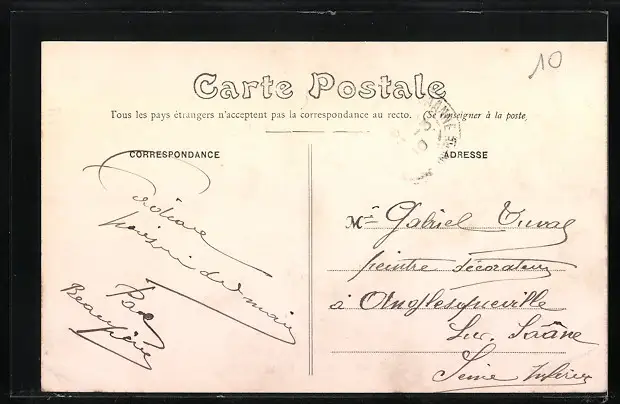 10
Carte Postale
Tous les pays étrangers n'acceptent pas la correspondance au recto. (Se renseigner à la poste
CORRESPONDANCE
ADRESSE
Cordiale
poignée de main
Paul
Beaupère
Mr Gabriel Duval
peintre décorateur
à Anglesqueville
Sur. Saâne
Seine Infre